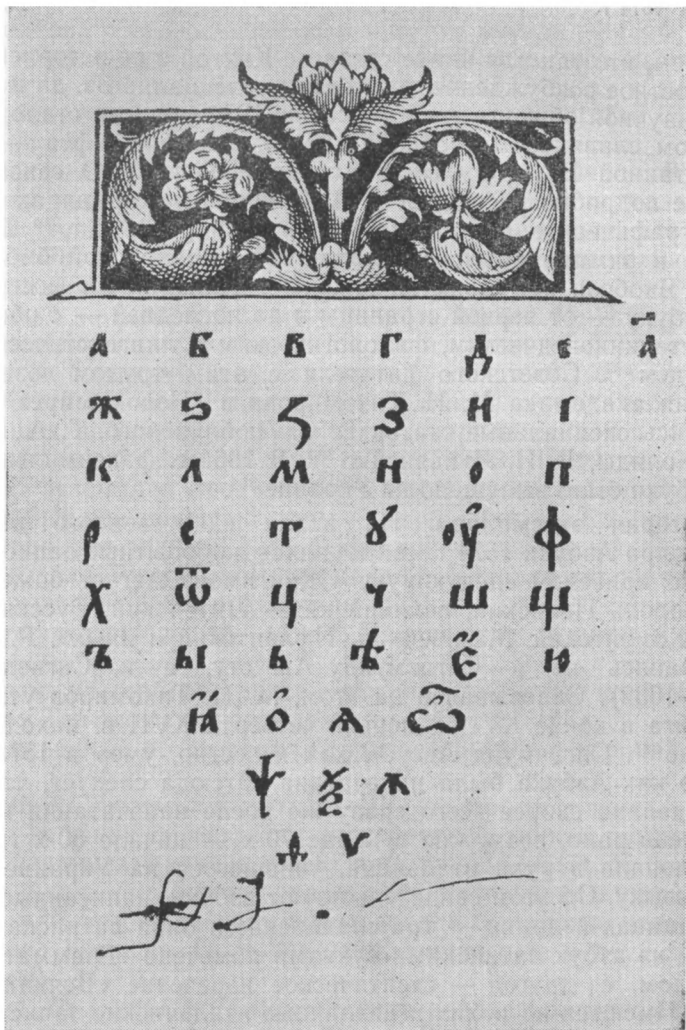 а б в г д є А
ж ѕ ꙁ з и і
к л м н о п
р с т ꙋ оу ф
х ѿ ц ч ш щ
ъ ы ь ѣ є҆ ю
ꙗ҆ о҆ ѧ ѽ
ѱ ѯ ѫ
ѳ ѵ